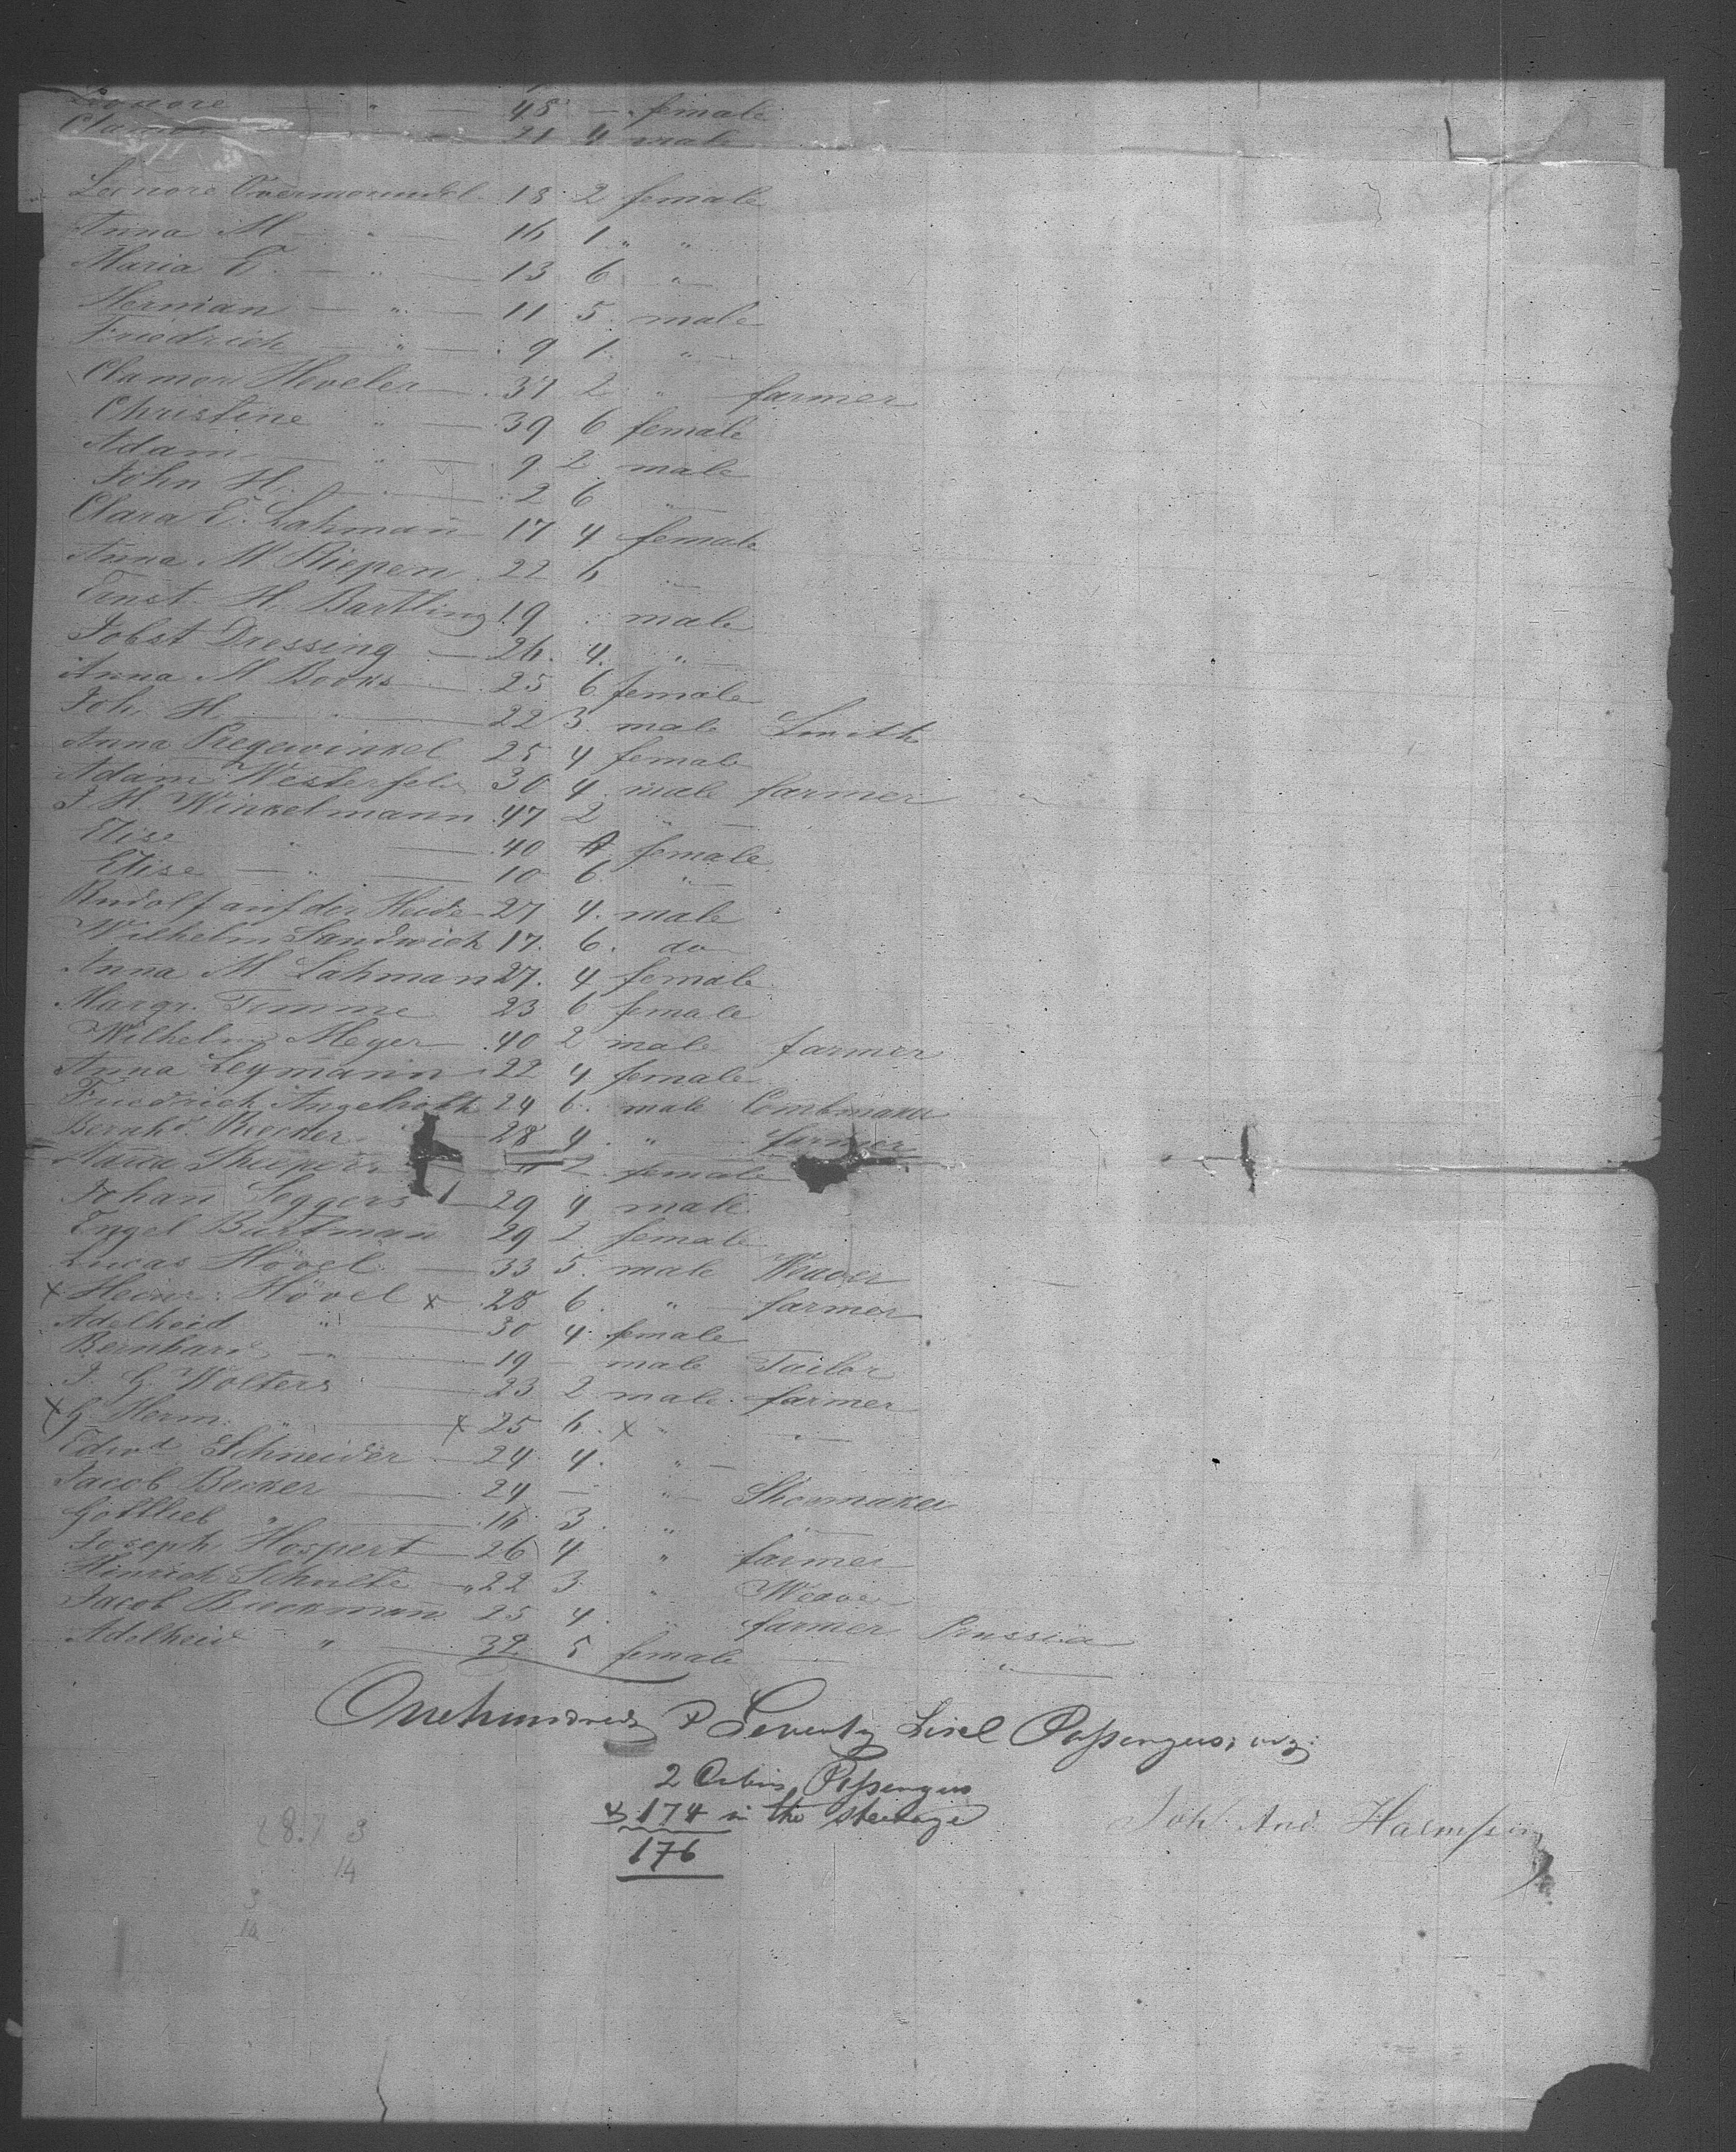 Leonore " 48 - female
21 4 male
Leonore 18 2 female
Anna M " 16 1 " "
Maria E. " 13 6 "
Herman " 11 5 male
Friedrich " 9 1 "
Clamor Heveler 37 2 " farmer
Christine " 39 6 female
Adam " 9 2 male
John H. " 2 6 "
Clara E. Lahman 17 4 female
Anna M Riepen 22 6 "
Ernst H. Bartling 19 male
Jobst Dressing 26 4 "
Anna M Books 25 6 female
Joh. H. " 22 3 male Smith
Anna 25 4 female
Adam Westerfeld 30 4 male farmer "
J. H. Winkelmann 47 2 "
Elise " 40 4 female
Elise " 10 6 "
Rudolf auf der Heide 27 4. male
Wilhelm Sandwich 17. 6. do
Anna M Lahman 27. 4 female
Margr. Temme 23 6 female
Wilhelm Meyer 40 2 male farmer
Anna Legmann 22 4 female
Friedrich 24 6. male Combmaker
Bernhd. Becker 28 4. " farmer
2 female
Johan Seggers 29 4 male
Engel Bultman 29 2 female
Lucas Hövel 33 5. male Weaver
x Heinr. Hövel x 28 6. " farmer
Adelheid " 30 4. female
Bernhard " 19 - male Tailor
J. G. Wolters 23 2 male farmer
x G Herm. " x 25 6. x " "
Edwd Schneider 24 4. "
Jacob Becker 24 - " Shoemaker
Gottlieb " 16 3. " "
Joseph Hospert 26 4 " farmer
Hinrich Schulte 22 3 " Weaver
Jacob Buckman 25 4. " farmer Prussia
Adelheid " 32 5 female "
Onehundred & Seventy Passengers, viz:
2 Cabin Passengers
& 174 in the steerage
176
Joh. And.
3
14
3